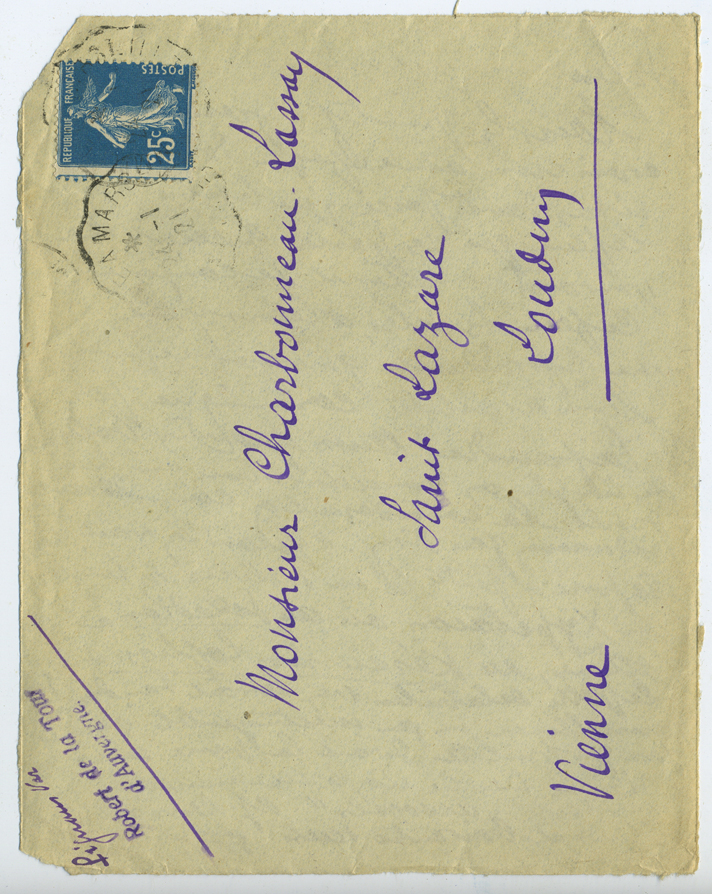 RÉPUBLIQUE FRANÇAISE
POSTES
25c
MARS
Monsieur Charbonneau-Lassay
Saint Lazare
Loudun
Vienne
Robert de la Tour
d'Auvergne.